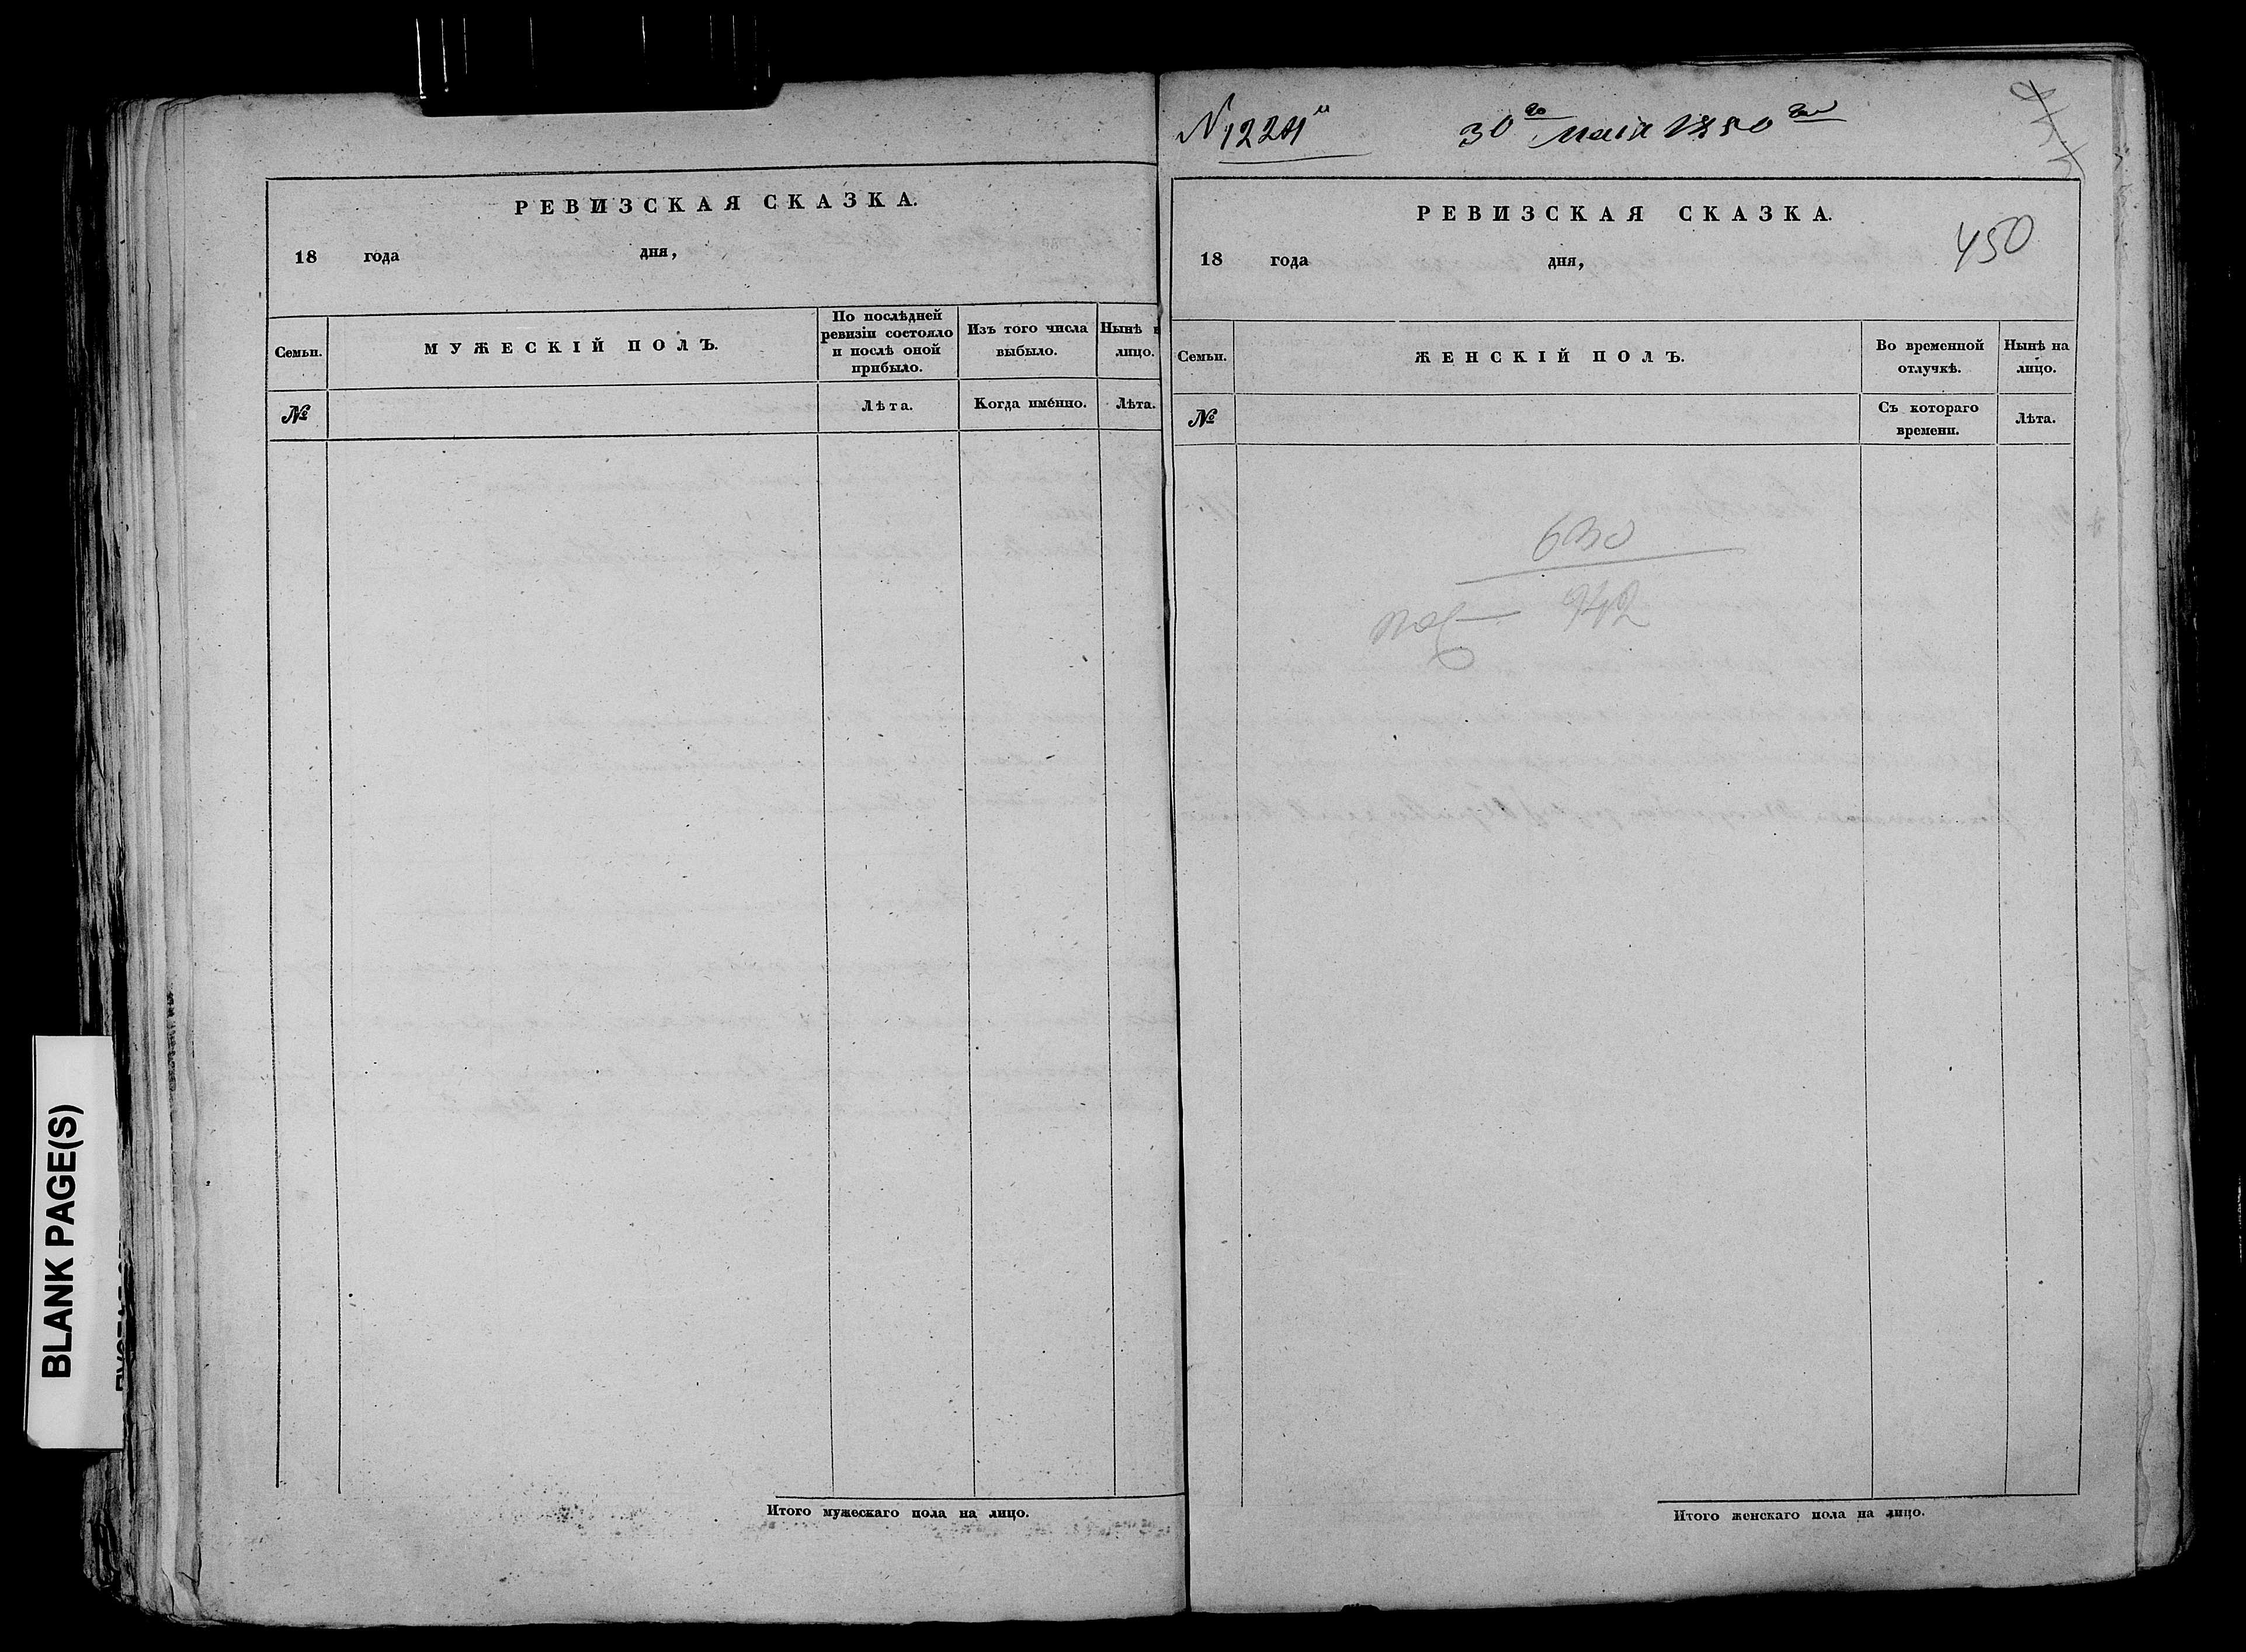 BLANK PAGE(S)
РЕВИЗСКАЯ СКАЗКА.
18 года дня,
Семьи.
МУЖЕСКІЙ ПОЛЪ.
По послѣдней
ревизіи состояло
и послѣ оной
прибыло.
Изъ того числа
выбыло.
Нынѣ н
лицо.
№
Лѣта.
Когда имéнно.
Лѣта.
Итого мужескаго пола на лицо.
30го маія 1850
РЕВИЗСКАЯ СКАЗКА.
450
18 года дня,
Семьи.
ЖЕНСКІЙ ПОЛЪ.
Во временной
отлучкѣ.
Нынѣ на
лицо.
№
Съ котораго
времени.
Лѣта.
630
942
Итого женскаго пола на лицо.